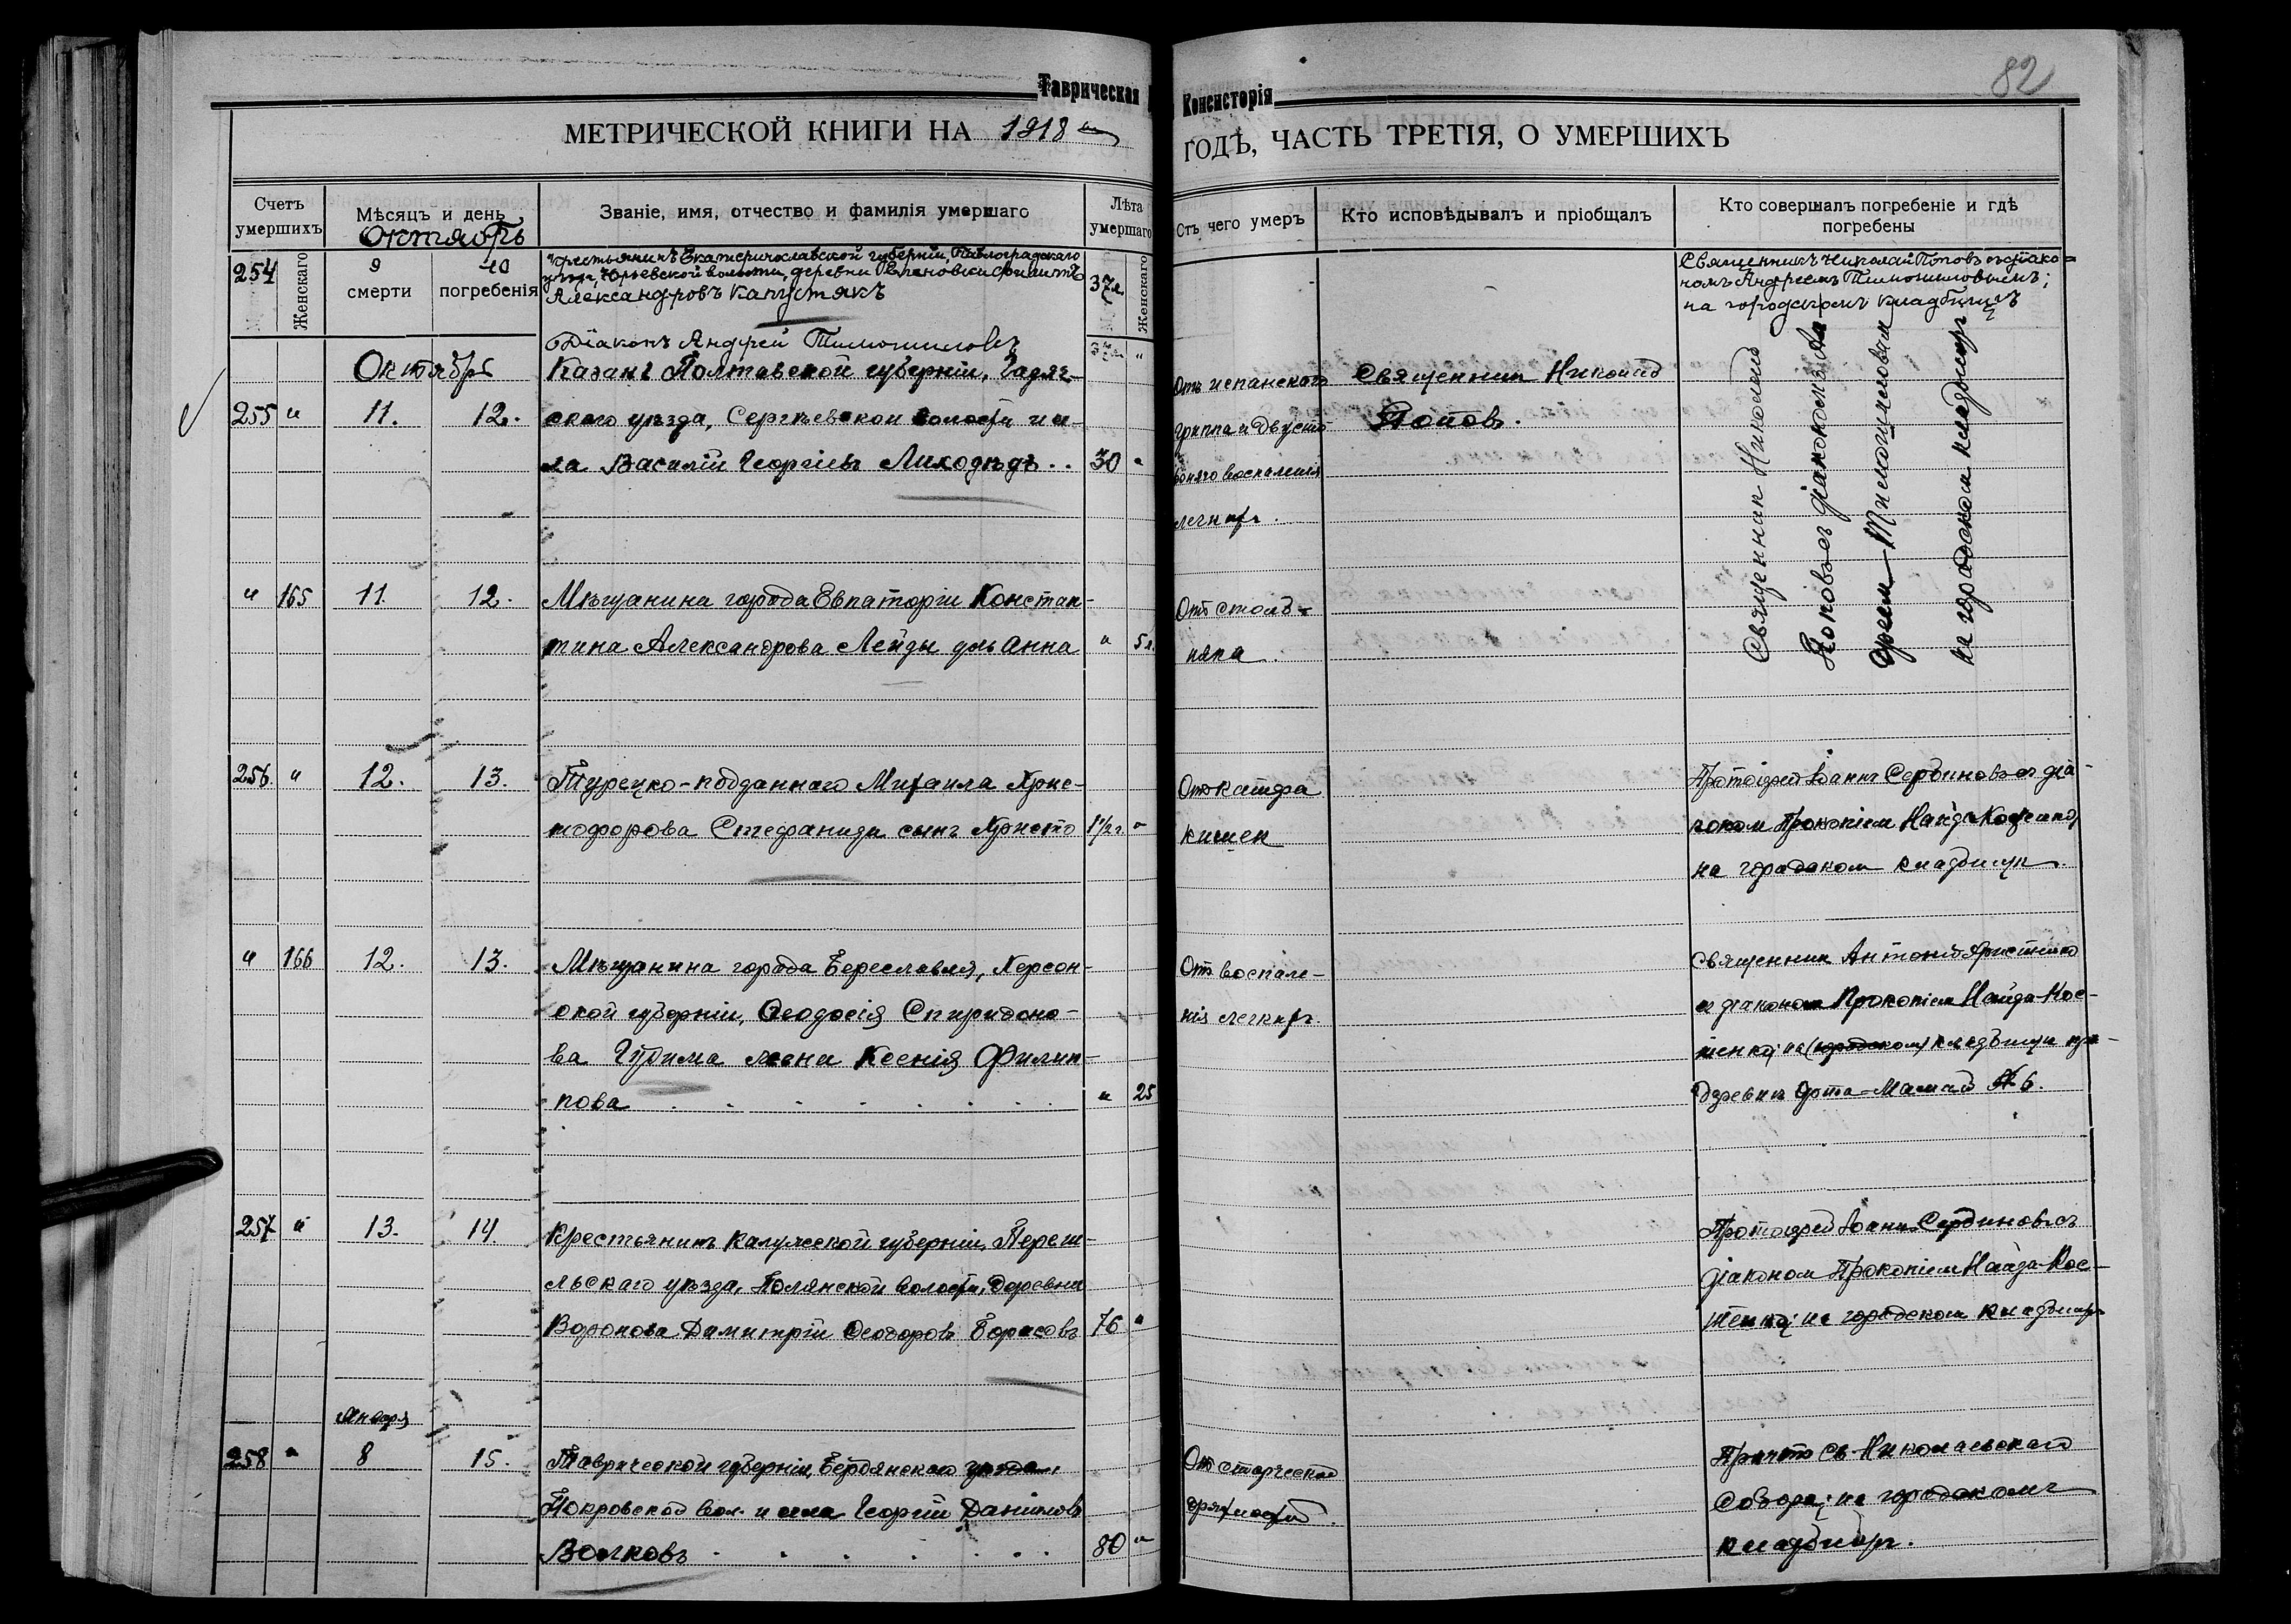 82
Таврическая Консисторія
МЕТРИЧЕСКОЙ КНИГИ НА 1918
ГОДѢ, ЧАСТЬ ТРЕТІЯ, О УМЕРШИХЪ
Счетъ умершихъ
Мѣсяцъ и день
Октябрь
Званіе, имя, отчество и фамилія умершаго
Лѣта умершаго
Отъ чего умеръ
Кто исповѣдывалъ и пріобщалъ
Кто совершалъ погребеніе и гдѣ погребены
Женскаго
смерти
погребенія
Женскаго
254 9 10
Крестьянинъ Екатеринославской губерніи, Павлоградскаго
уѣзда, Юрьевской волости, деревни Филиппъ
Александровъ Капустякъ
37 л.
Священникъ Николай Поповъ съ діако=
номъ Андреемъ Тимошиловымъ;
на городскомъ кладбищѣ
Діаконъ Андрей Тимошиловъ
Октябрь
255 " 11. 12.
Казакъ Полтавской губерніи, Гадяч-
скаго уѣзда, Сергѣевской волости и се-
ла Василій Георгіевъ Лиходѣдъ . .
30 "
Отъ испанскаго
гриппа и двусто
ронняго воспаленія
легкихъ.
Священник Николай
Попов.
Священник Николай
Попов съ діаконом Ан
дреем Тимошиловым
на городском кладбищѣ
" 165 11. 12.
Мѣщанина города Евпаторіи Констан-
тина Александрова Лейды дочь Анна
" 5 л.
Отъ столб-
няка.
256. " 12. 13.
Турецко-подданнаго Михаила Хрис-
тофорова Стефаниди сынъ Христо
1 1/2 г. "
От катара
кишек
Протоіерей Іоаннъ Сербиновъ съ діа-
коном Прокопіем Найда-Костенко,
на городском кладбищѣ
" 166 12. 13.
Мѣщанина города Береславля, Херсон-
ской губерніи, Ѳеодосія Спиридоно-
ва жена Ксенія Филип-
пова
" 25
От воспале-
нія легкихъ
Священник Антоній Христико
с діаконом Прокопіем Найда-Кос-
тенко; на (городском) кладбищѣ при
деревнѣ Орта-Мамай № 6.
257 " 13. 14.
Крестьянинъ Калужской губерніи, Перем-
льскаго уѣзда, Полянской волости, деревни
Воронова Димитрій Ѳеодоровъ Борисовъ
76 "
Протоіерей Іоаннъ Сербиновъ съ
діаконом Прокопіем Найда-Кос-
тенко; на городском кладбищѣ
Января
258 " 8 15.
Таврической губерніи, Бердянскаго уѣзда,
Покровской вол. и села Георгій Даніиловъ
Волковъ
80 "
От старческой
дряхлости.
Причт Св. Николаевскаго
Собора; на городскомъ
кладбищѣ.